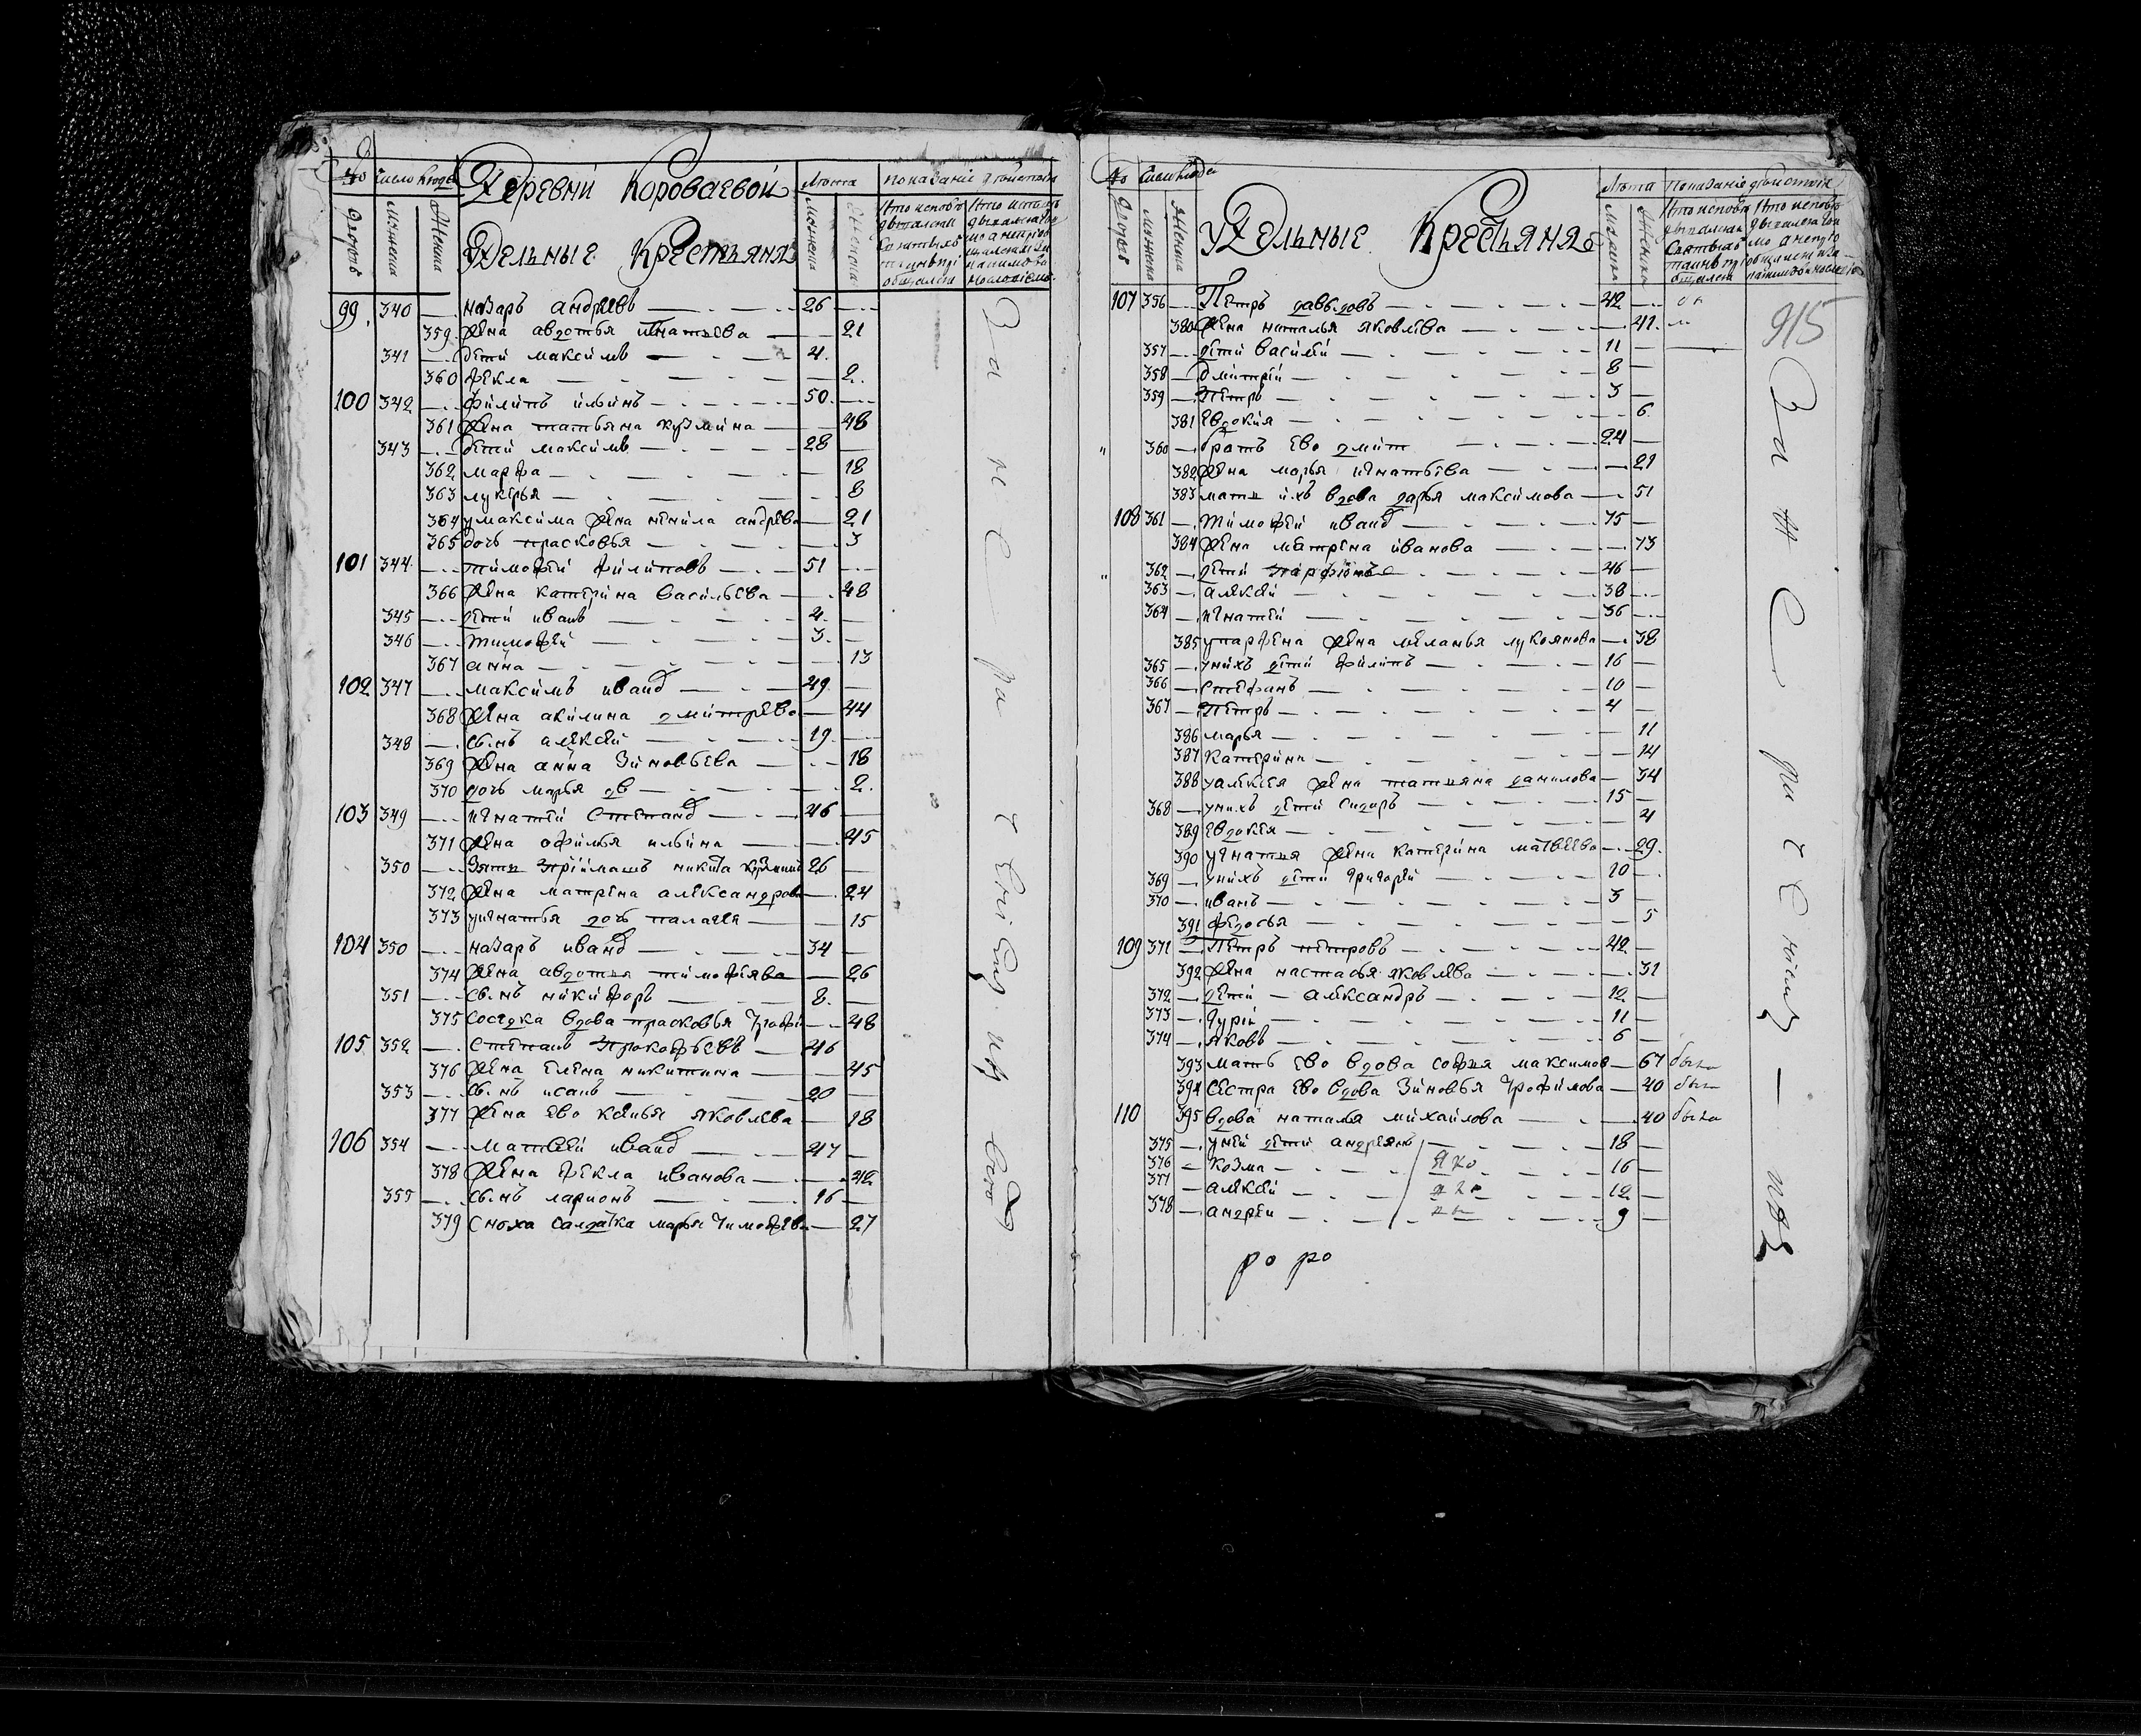 № Число людей Деревни Короваевой Лѣта Показаніе дѣйства
дворовъ Мужеска Женска Удельные Крестьяня Мужеска Женска
99 340 — назаръ андреевъ — 26
359 жена авдотья игнатьева — 21
341 — дети максимъ — 4
360 фекла — 2
100 342 — филипъ ильинъ — 50
361 жена татьяна кузмина — 48
343 — дети максимъ — 28
362 марфа — 18
363 лукерья — 8
364 умаксима жена ненила андрева — 21
365 дочь прасковья — 3
101 344 — тимофей филиповъ — 51
366 жена катерина васильева — 48
345 — дети иванъ — 4
346 — тимофей — 3
367 анна — 13
102 347 — максимъ иванд — 49
368 жена акилина дмитрева — 44
348 — сынъ алексей — 19
369 жена анна зиновьева — 18
370 дочь марья дв — 2
103 349 — игнатей степанд — 46
371 жена офимья ильина — 45
350 — зять приимашъ никита — 26
372 жена матрена александрова — 24
373 уигнатья дочь палагея — 15
104 350 — назаръ иванд — 34
374 жена авдотья тимофеява — 26
351 — сынъ никифоръ — 8
375 соседка вдова прасковья — 48
105 352 — степанъ прокофьевъ — 46
376 жена елена никитина — 45
353 — сынъ исаиъ — 20
377 жена ево ксенья яковлева — 18
106 354 — матвей иванд — 47
378 жена фекла иванова — 42
355 — сынъ ларионъ — 16
379 сноха салдатка марья тимофева — 27
№ Число людей Лѣта Показаніе дѣйства
дворовъ Мужеска Женска Удельные Крестьяня Мужеска Женска
915
107 356 — Петръ давыдовъ — 42
380 жена наталья яковлева — 41
357 — дети василей — 11
358 — дмитрей — 8
359 — петръ — 3
381 евдокия — 6
360 — братъ ево дмит — 24
382 жена марья игнатьева — 21
383 мать ихъ вдова дарья максимова — 51
108 361 — тимофей иванд — 75
384 жена матрена иванова — 73
362 — дети парфионъ — 46
363 — алексей — 38
364 — игнатей — 36
385 упарфена жена меланья лукоянова — 38
365 — унихъ дети филипъ — 16
366 — стефанъ — 10
367 — петръ — 4
386 марья — 11
387 катерина — 14
388 уалексея жена татьяна данилова — 34
368 — унихъ дети сидоръ — 15
389 евдокея — 4
390 уигнатья жена катерина матвеева — 29
369 — унихъ дети григорей — 10
370 — иванъ — 3
391 федосья — 5
109 371 — Петръ петровъ — 42
392 жена настасья яковлева — 31
372 — дети — александръ — 12
373 — гурiй — 11
374 — яковъ — 6
393 мать ево вдова софья максимов — 67 была
394 сестра ево вдова зиновья трофимова — 40 была
110 395 вдова наталья михайлова — 40 была
375 — уней дети андреянъ — 18
376 — козма — 16
377 — алексей — 12
378 — андрей — 9
ро ро